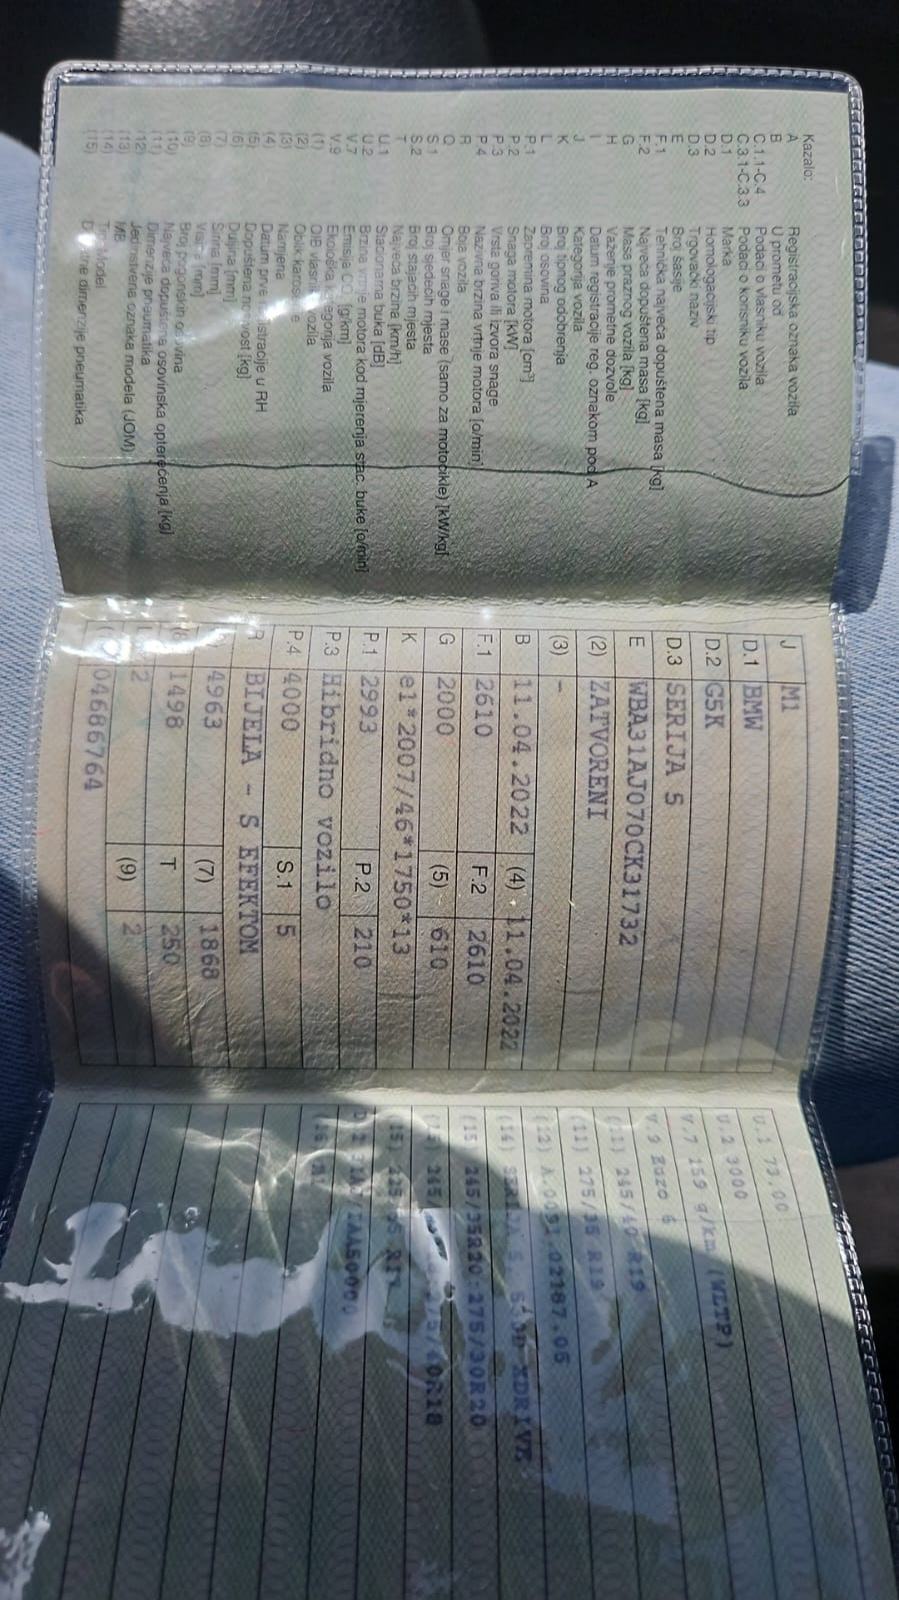 Kazalo:
A Registracijska oznaka vozila
B U prometu od
C.1.1-C.4 Podaci o vlasniku vozila
C.3.1-C.3.3 Podaci o korisniku vozila
D.1 Marka
D.2 Homologacijski tip
D.3 Trgovački naziv
E Broj šasije
F.1 Tehnička najveća dopuštena masa [kg]
F.2 Najveća dopuštena masa [kg]
G Masa praznog vozila [kg]
H Važenje prometne dozvole
I Datum registracije reg. oznakom pod A
J Kategorija vozila
K Broj tipnog odobrenja
L Broj osovina
P.1 Zapremina motora [cm³]
P.2 Snaga motora [kW]
P.3 Vrsta goriva ili izvora snage
P.4 Nazivna brzina vrtnje motora [o/min]
R Boja vozila
Q Omjer snage i mase (samo za motocikle) [kW/kg]
S.1 Broj sjedećih mjesta
S.2 Broj stajaćih mjesta
T Najveća brzina [km/h]
U.1 Stacionarna buka [dB]
U.2 Brzina vrtnje motora kod mjerenja stac. buke [o/min]
V.7 Emisija [g/km]
V.9 Ekološka kategorija vozila
(1) OIB vlasnika vozila
(2) Oblik karoserije
(3) Namjena
(4) Datum prve registracije u RH
(5) Dopuštena nosivost [kg]
(6) Duljina [mm]
(7) Širina [mm]
(8) Visina [mm]
(9) Broj pogonskih osovina
(10) Najveća dopuštena osovinska opterećenja [kg]
(11) Dimenzije pneumatika
(12) Jedinstvena oznaka modela (JOM)
(13) MB
(14) Tip Modeli
(15) dimenzije pneumatika
J M1
D.1 BMW
D.2 G5K
D.3 SERIJA 5
E WBA31AJ070CK31732
(2) ZATVORENI
(3) -
B 11.04.2022 (4) 11.04.2022
F.1 2610 F.2 2610
G 2000 (5) 610
K e1*2007/46*1750*13
P.1 2993 P.2 210
P.3 Hibridno vozilo
P.4 4000 S.1 5
R BIJELA - S EFEKTOM
4963 (7) 1868
1498 T 250
2 (9) 2
04686764
U.1 73.00
U.2 3000
V.7 159 g/km (WLTP)
V.9 Euro 6
(11) 245/40 R19
(11) 275/35 R19
(12) A 0091.02187.06
(14) SERIJA 5, XDRIVE
(15) 245/35R20 275/30R20
(15) 245/ /40R18
(15) 225/55
(16)